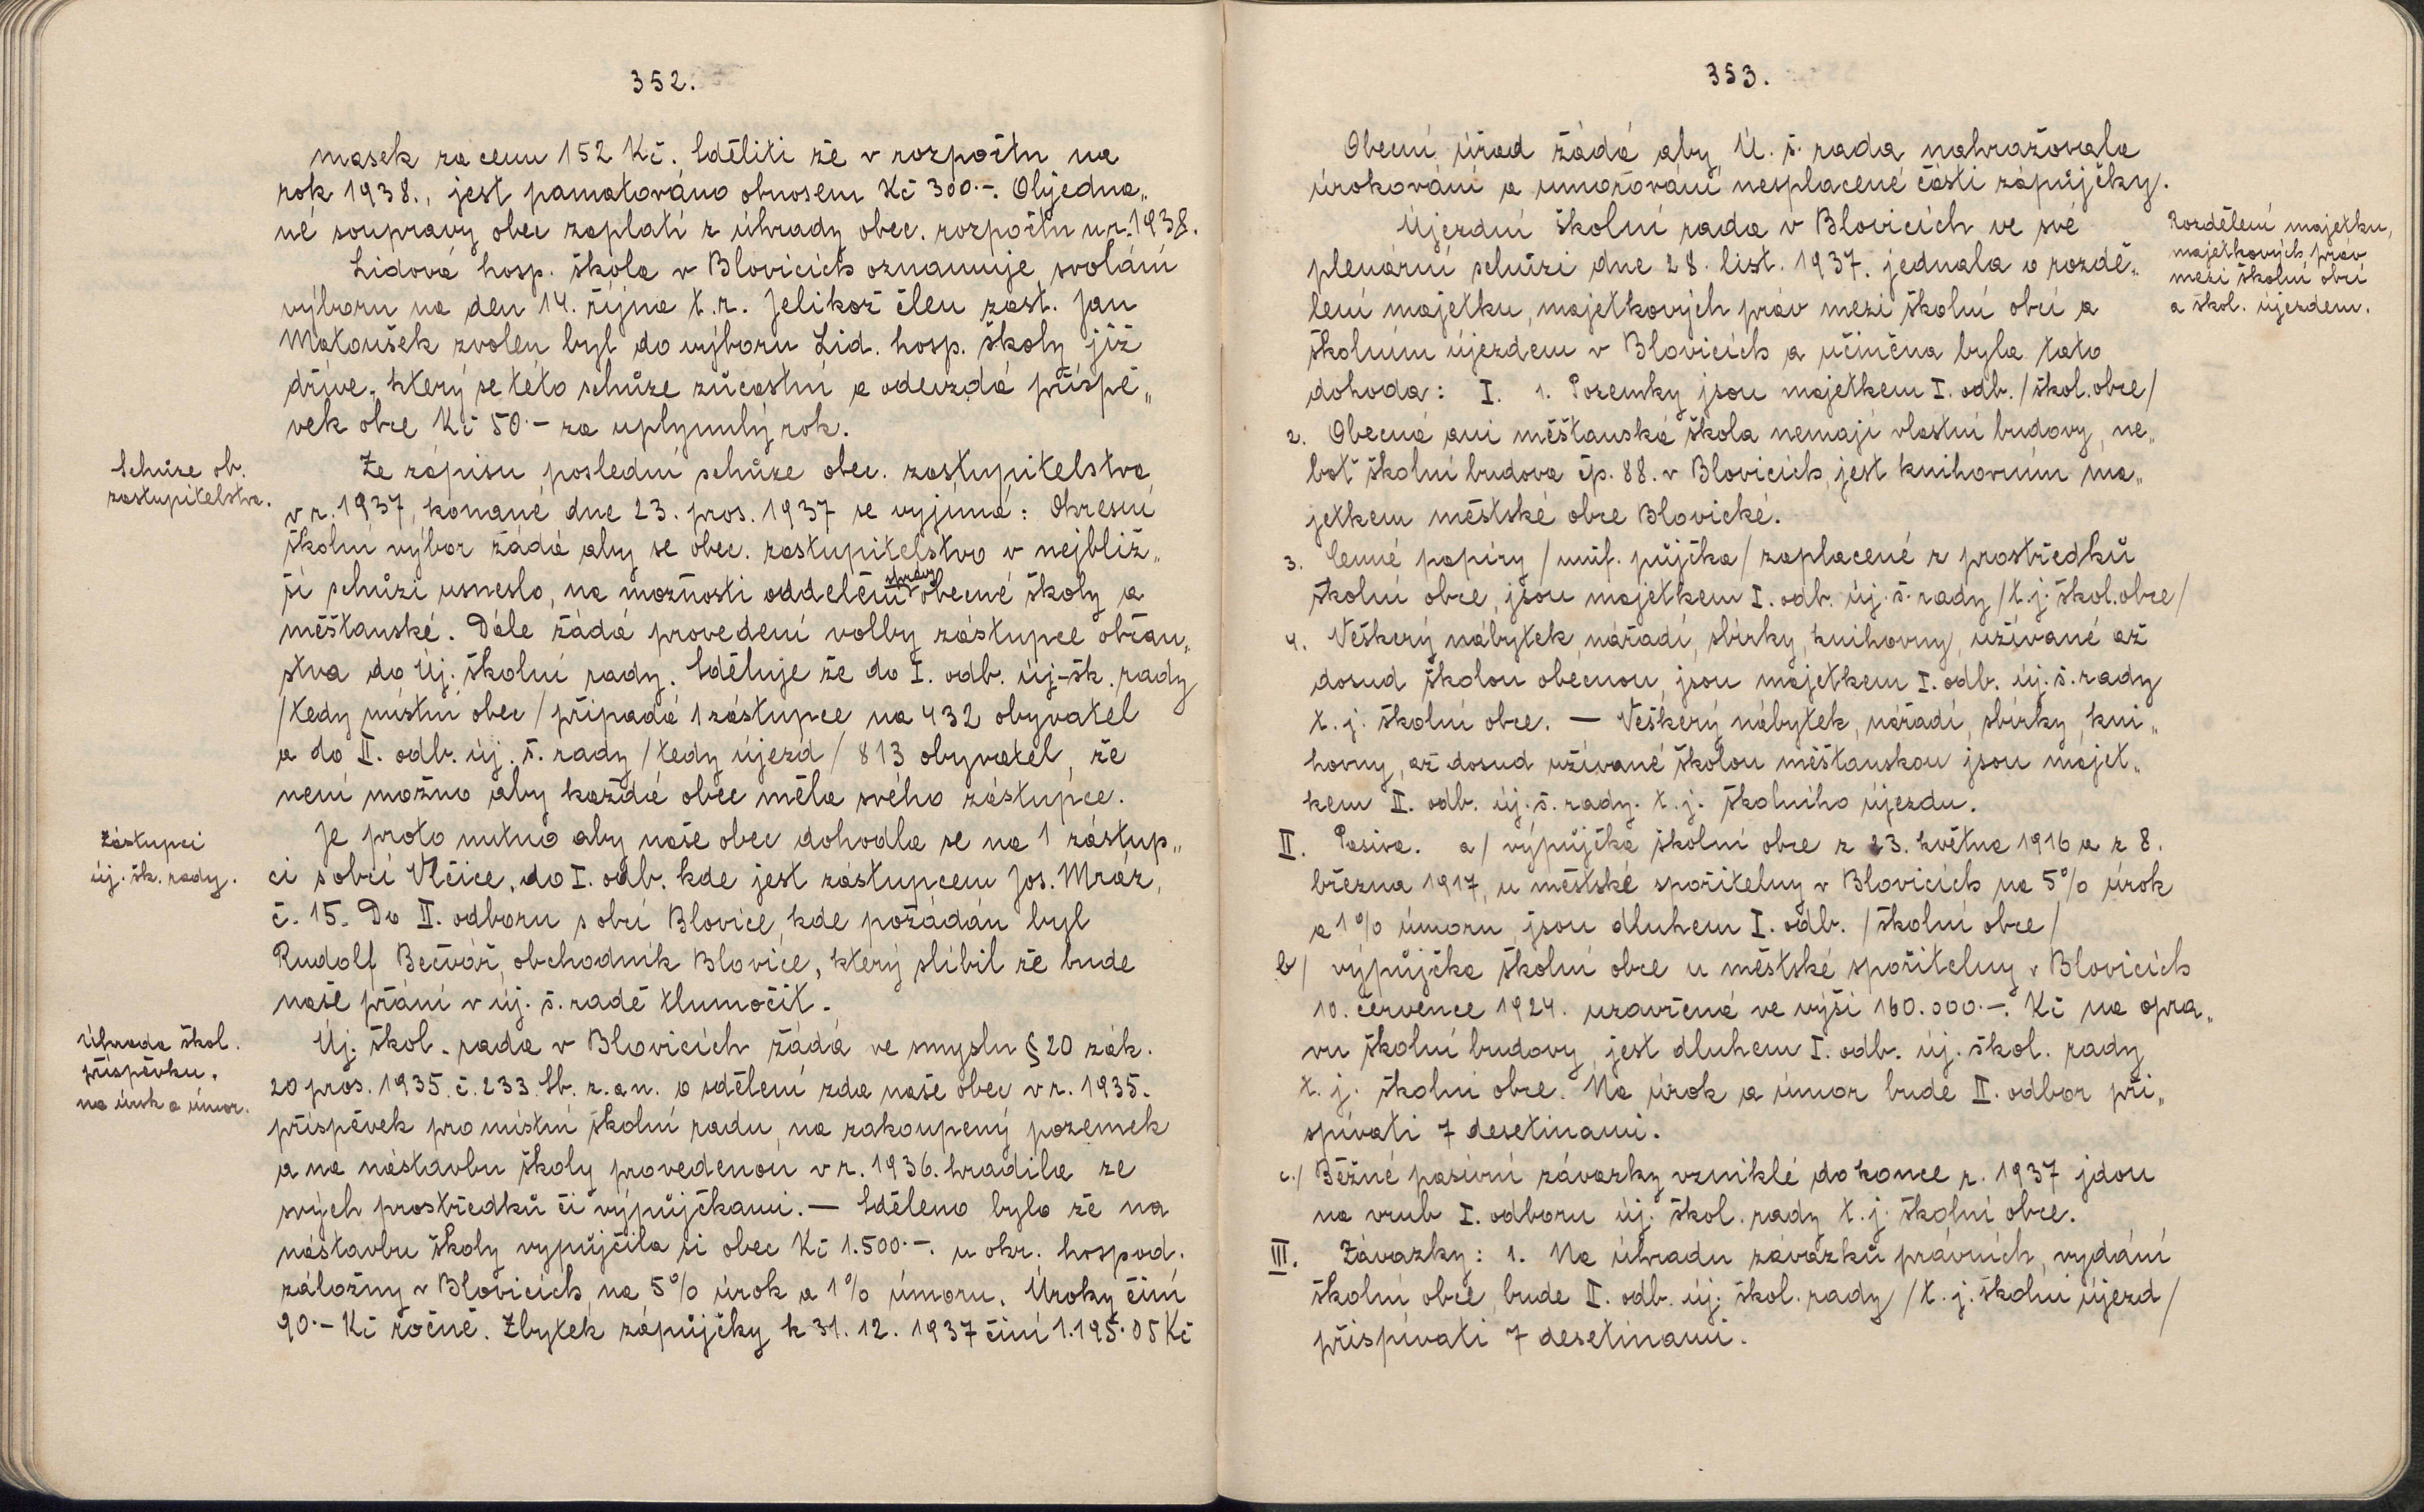 352.
masek za cenu 152 Kč. Sděliti že v rozpočtu na
rok 1938., jest pamatováno obnosem Kč 300.-. Objedna„
né soupravy obec zaplatí z úhrady obec. rozpočtu u r. 1938.
Lidová hosp. škola v Blovicích oznamuje svolání
výboru na den 14. října t.r. Jelikož člen zast. Jan
Matoušek zvolen byl do výboru Lid. hosp. školy již
dříve, který se této schůze zúčastní a odevzdá příspě„
vek obce Kč 50.- za uplynulý rok.
Schůze ob.
zastupitelstva.
Ze zápisu poslední schůze obec. zastupitelstva
v r. 1937, konané dne 23. pros. 1937 se vyjímá: Okresní
školní výbor žádá aby se obec. zastupitelstvo v nejbliž„
ší schůzi usneslo, na možnosti oddělení správ obecné školy a
měšťanské. Dále žádá provedení volby zástupce občan„
stva do Új. školní rady. Sděluje že do I. odb. új-šk. rady
/tedy místní obec/ připadá 1 zástupce na 432 obyvatel
a do II. odb. új. š. rady /tedy újezd/ 813 obyvatel, že
není možno aby každá obec měla svého zástupce.
Zástupci
új. šk. rady.
Je proto nutno aby naše obec dohodla se na 1 zástup„
ci s obcí Vlčice, do I. odb. kde jest zástupcem Jos. Mráz,
č. 15. Do II. odboru s obcí Blovice, kde požádán byl
Rudolf Bečvář, obchodník Blovice, který slíbil že bude
naše přání v új. š. radě tlumočit.
Úhrada škol.
příspěvku.
na úrok a úmor.
Új. škol. rada v Blovicích žádá ve smyslu § 20 zák.
20 pros. 1935. č. 233. Sb. z. a n. o sdělení zda naše obec v r. 1935.
příspěvek pro místní školní radu, na zakoupený pozemek
a na nástavbu školy provedenou v r. 1936. hradila ze
svých prostředků či výpůjčkami. — Sděleno bylo že na
nástavbu školy vypůjčila si obec Kč 1.500.-. u okr. hospod.
záložny v Blovicích na 5% úrok a 1% úmoru. Úroky činí
90.- Kč ročně. Zbytek zápůjčky k 31. 12. 1937 činí 1.195.05 Kč
353.
Obecní úřad žádá aby Ú. š. rada nahražovala
úrokování a umořování nesplacené části zápůjčky.
Rozdělení majetku,
majetkových práv
mezi školní obcí
a škol. újezdem.
Újezdní školní rada v Blovicích ve své
plenární schůzi dne 28. list. 1937. jednala o rozdě„
lení majetku, majetkových práv mezi školní obcí a
školním újezdem v Blovicích a učiněna byla tato
dohoda: I. 1. Pozemky jsou majetkem I. odb. /škol. obce/
2. Obecná ani měšťanská škola nemají vlastní budovy, ne„
boť školní budova čp. 88. v Blovicích, jest knihovním ma„
jetkem městské obce Blovické.
3. Cenné papíry /unif. půjčka/ zaplacené z prostředků
školní obce, jsou majetkem I. odb. új. š. rady /t.j. škol. obce/
4. Veškerý nábytek, nářadí, sbírky, knihovny, užívané až
dosud školou obecnou, jsou majetkem I. odb. új. š. rady
t. j. školní obce. — Veškerý nábytek, nářadí, sbírky, kni„
hovny, až dosud užívané školou měšťanskou jsou majet„
kem II. odb. új. š. rady. t. j. školního újezdu.
II. Pasiva. a/ výpůjčka školní obce z 23. května 1916 a z 8.
března 1917, u městské spořitelny v Blovicích na 5% úrok
a 1% úmoru, jsou dluhem I. odb. /školní obce/
b/ výpůjčka školní obce u městské spořitelny v Blovicích
10. července 1924. uzavřená ve výši 160.000.-. Kč na opra„
vu školní budovy, jest dluhem I. odb. új. škol. rady
t. j. školní obce. Na úrok a úmor bude II. odbor při„
spívati 7 desetinami.
c./ Běžné pasivní závazky vzniklé do konce r. 1937 jdou
na vrub I. odboru új. škol. rady t. j. školní obce.
III. Závazky: 1. Na úhradu závazků právních, vydání
školní obce, bude II. odb. új. škol. rady /t. j. školní újezd/
přispívati 7 desetinami.